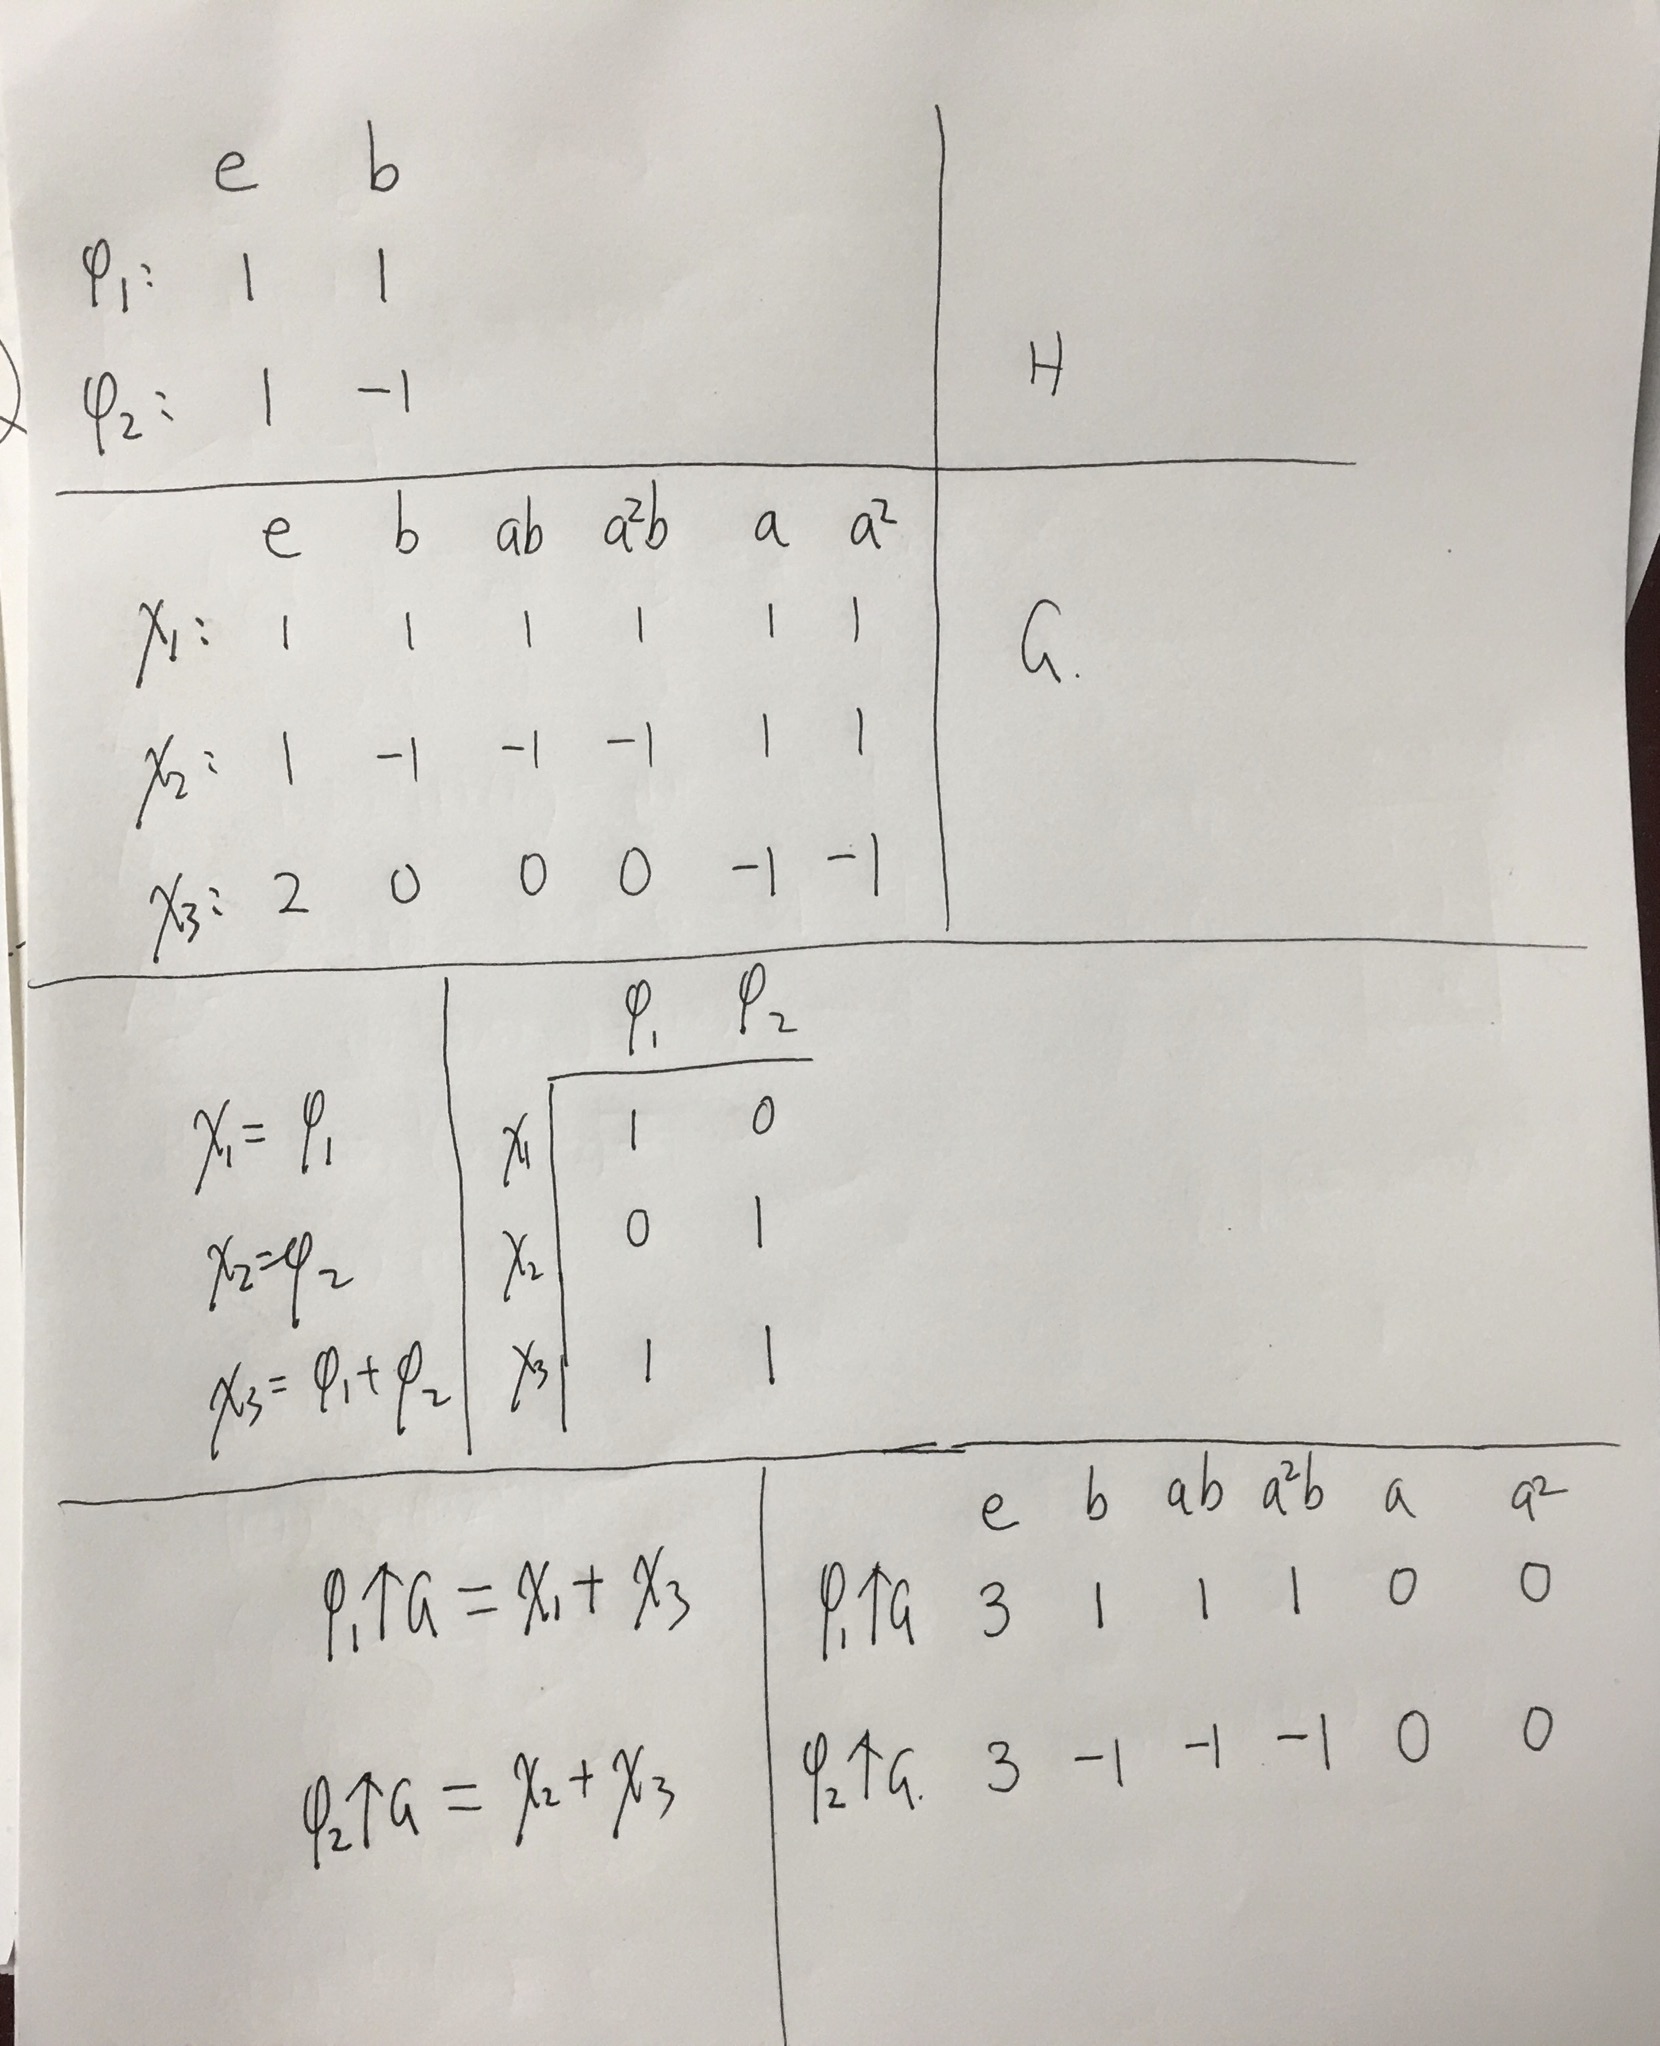 e b
φ₁: 1 1
φ₂: 1 -1
H
e b ab a²b a a²
χ₁: 1 1 1 1 1 1
G.
χ₂: 1 -1 -1 -1 1 1
χ₃: 2 0 0 0 -1 -1
χ₁= φ₁
χ₂=φ₂
χ₃= φ₁+φ₂
φ₁ φ₂
χ₁ 1 0
χ₂ 0 1
χ₃ 1 1
φ₁↑G = χ₁+ χ₃
φ₂↑G = χ₂+χ₃
e b ab a²b a a²
φ₁↑G 3 1 1 1 0 0
φ₂↑G. 3 -1 -1 -1 0 0